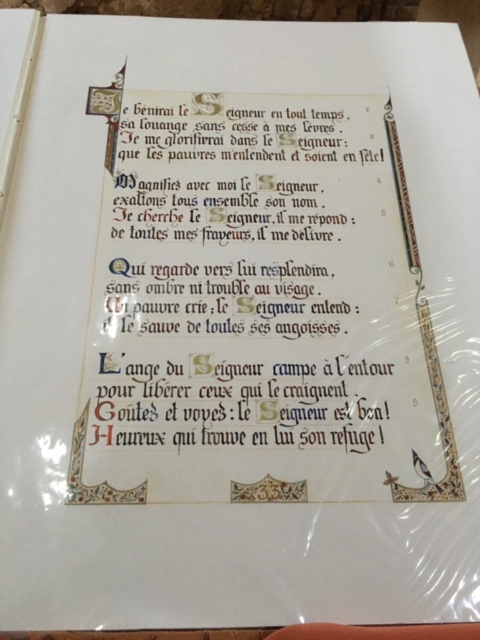 Je bénirai le Seigneur en tout temps, 2
sa louange sans cesse à mes lèvres.
Je me glorifierai dans le Seigneur: 3
que les pauvres m'entendent et soient en fête!
Magnifiez avec moi le Seigneur, 4
exaltons tous ensemble son nom.
Je cherche le Seigneur, il me répond: 5
de toutes mes frayeurs, il me délivre.
Qui regarde vers lui resplendira, 6
sans ombre ni trouble au visage.
Un pauvre crie; le Seigneur entend: 7
il le sauve de toutes ses angoisses.
L'ange du Seigneur campe à l'entour 8
pour libérer ceux qui le craignent.
Goûtez et voyez: le Seigneur est bon! 9
Heureux qui trouve en lui son refuge!
33